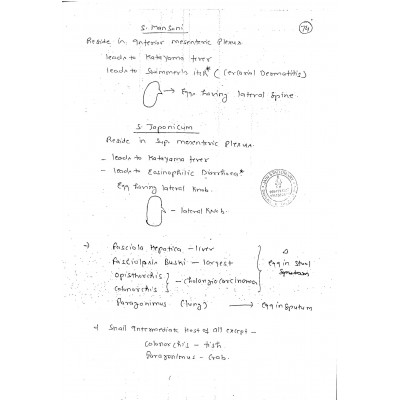 74
S. Mansoni
Reside in Inferior mesenteric Plexus
leads to Katayama fever
leads to Swimmer's itch* (Cercarial Dermatitis)
→ Eggs having lateral Spine.
S. Japonicum
Reside in Sup. mesenteric Plexus.
- leads to Katayama fever
- leads to Eosinophilic Diarrhoea*
Egg having lateral knob.
- lateral knob.
→ Fasciola Hepatica - liver
Fasciolopsis Buski - largest
Egg in Stool
Opisthorchis
Colonorchis
- Cholangiocarcinoma
Paragonimus (lung) → Egg in Sputum
Snail Intermediate Host of all except -
Colonorchis - fish.
Paragonimus - Crab.